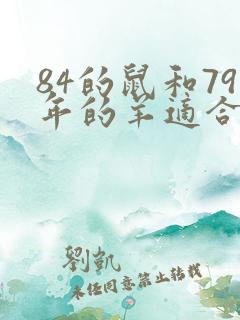 84的鼠和79
年的羊适合
劉凱
未任同意禁止转载